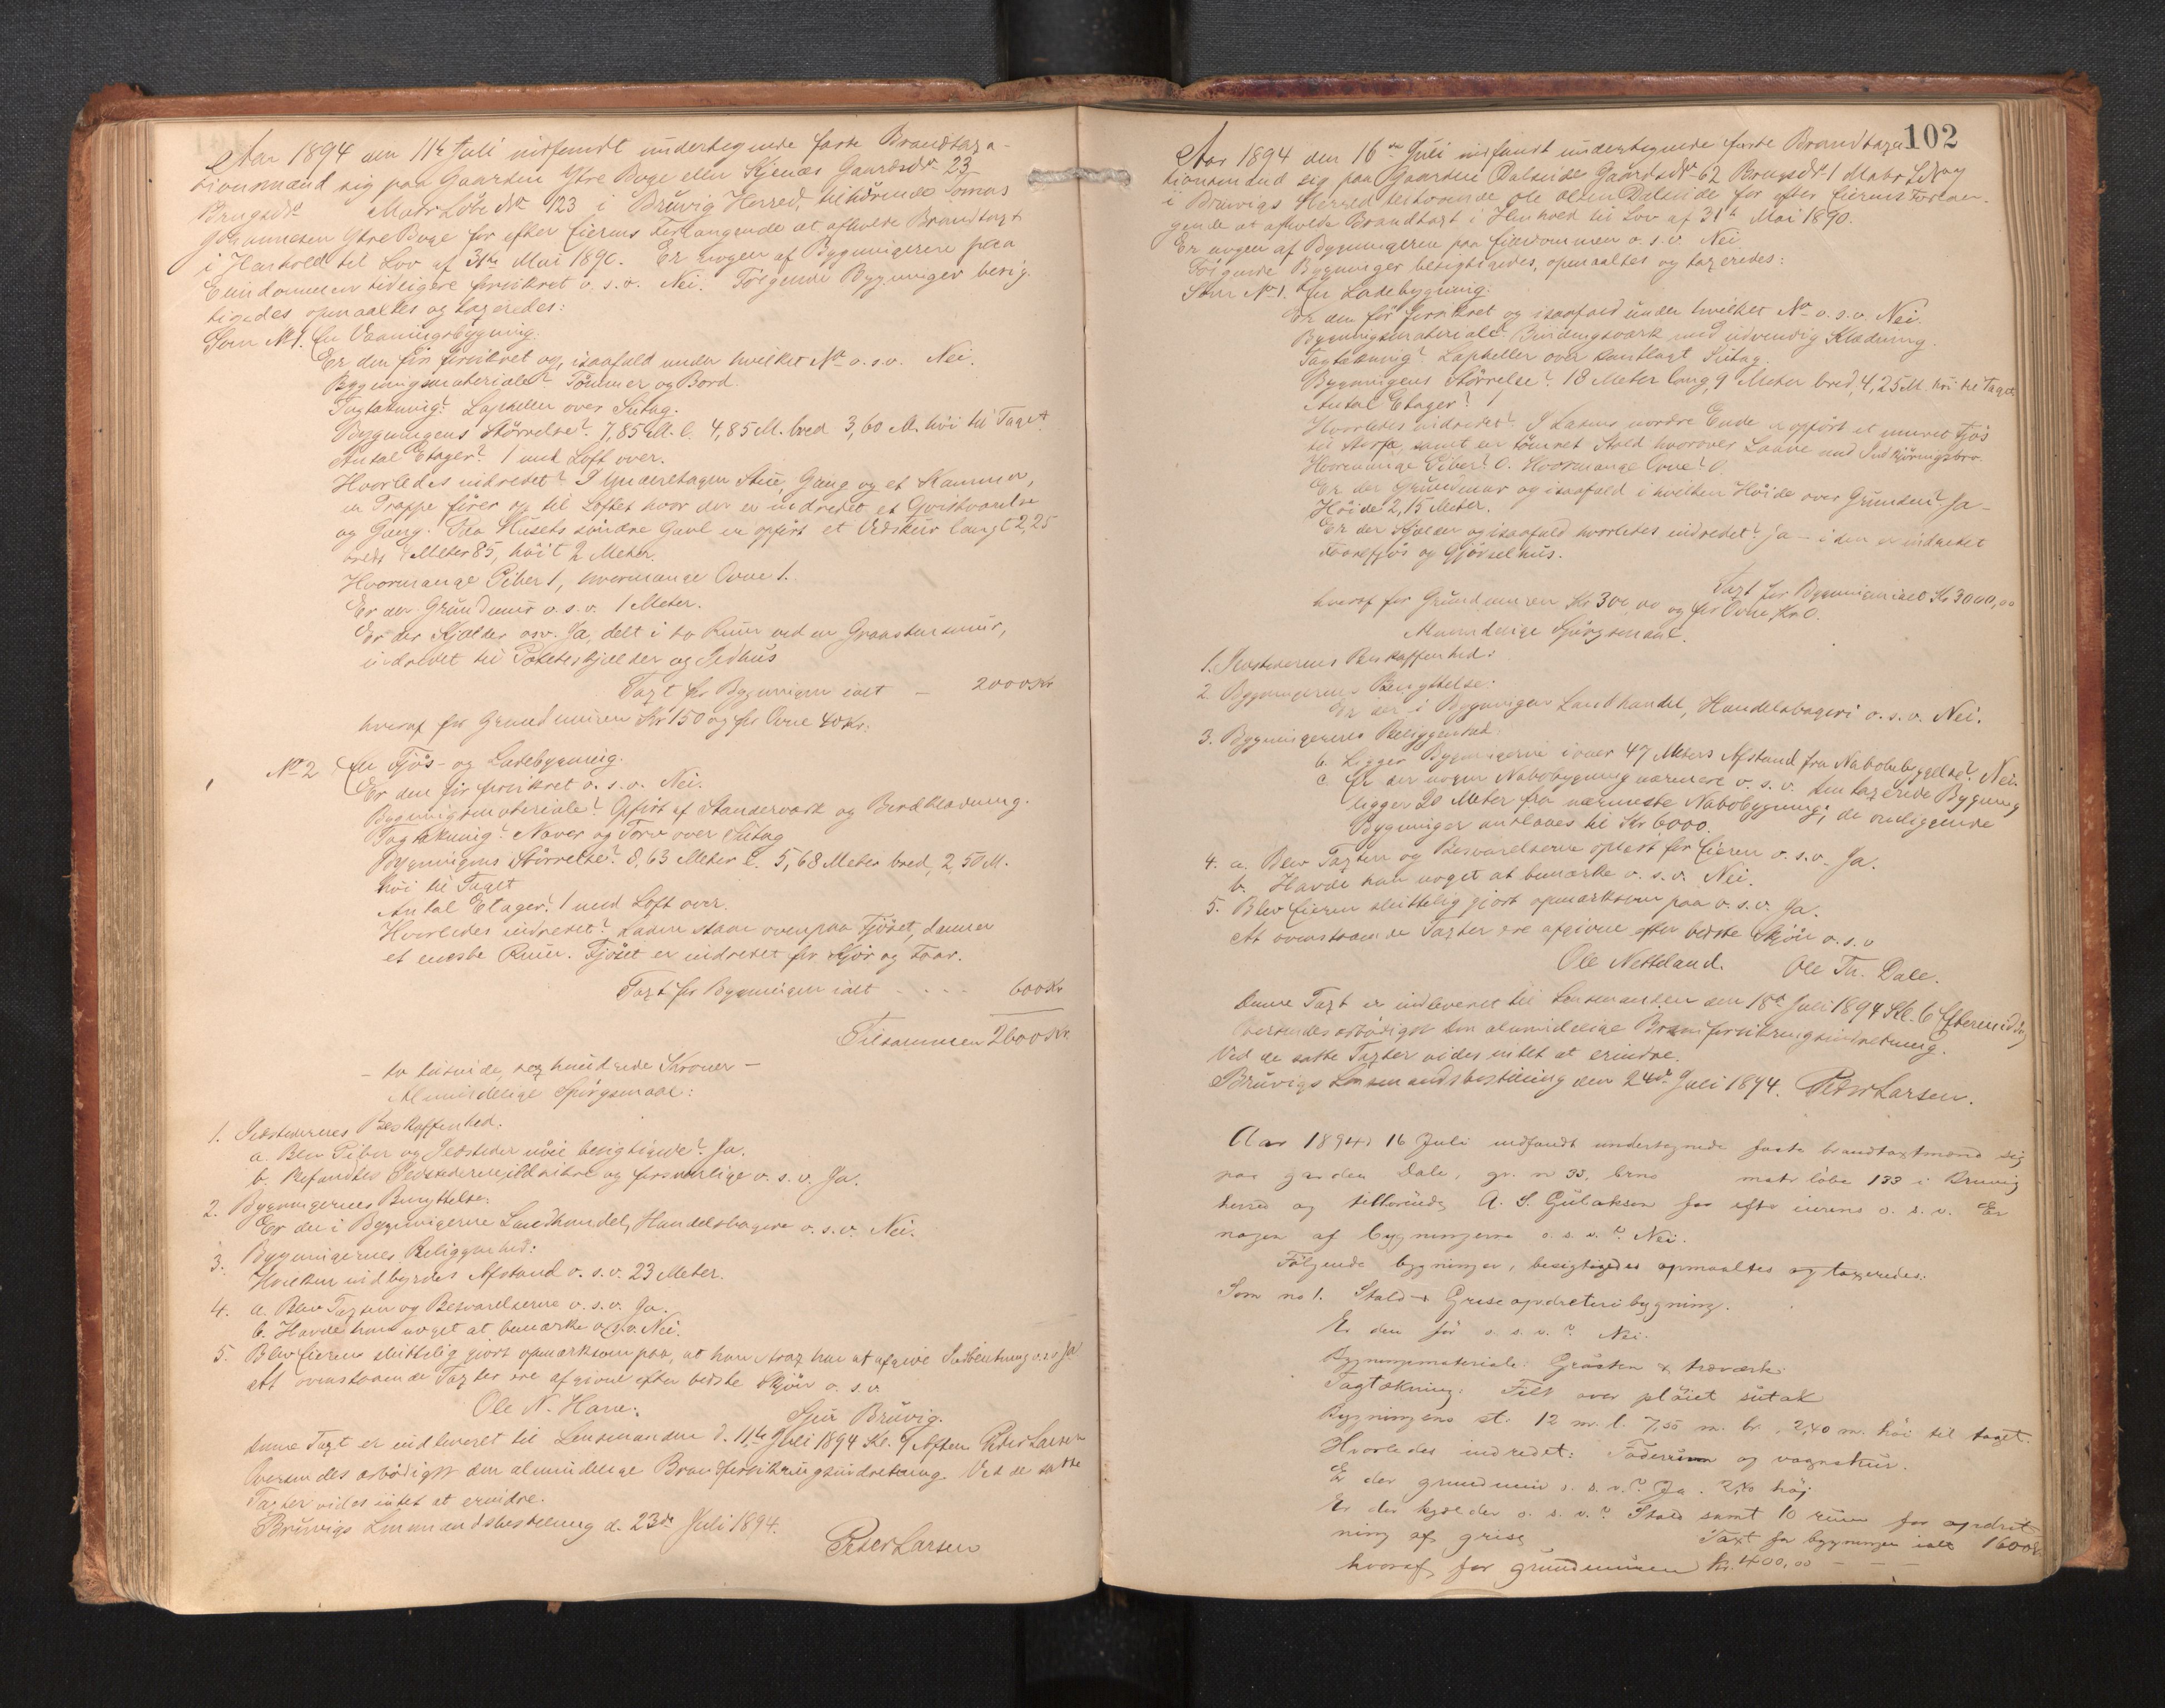 Aar 1894 den 11te Juli indfandt undertegnede faste Brandtaxa-
tionsmænd sig paa Gaarden Ytre Boge eller Skjenæs Gaardsdr 23
Brugsdr Matr Løbe Nr 123 i Bruvig Herred, tilhørende Tomas
Johannesen Ytre Boge for efter Eierens Forlangende at afholde Brandtaxt
i Henhold til Lov af 31te Mai 1890. Er nogen af Bygningerne paa
Eiendommen tidligere forsikret o. s. v. Nei. Følgende Bygninger besig-
tigedes opmaaltes og taxeredes:
Som No 1. En Vaaningsbygning.
Er den før forsikret og isaafald under hvilket No o. s. v. Nei.
Bygningsmateriale? Tømmer og Bord.
Tagtækning? Lapheller over Sutag.
Bygningens Størrelse? 7,85 M. l. 4,85 M. bred 3,60 M. høi til Taget.
Antal Etager? 1 med Loft over.
Hvorledes indredet? I Underetagen Stue, Gang og et Kammer,
en Trappe fører op til Loftet hvor der er indredet et Qvistværelse
og Gang. Paa Husets søndre Gavl er opført et Vedskur langt 2,25
bredt Meter 85, høit 2 Meter.
Hvormange Piber 1, hvormange Ovne 1.
Er der Grundmur o. s. v. 1 Meter.
Er der Kjælder osv. Ja, delt i to Rum ved en Graastensmur,
indredet til Poteteskjælder og Ildhus
Taxt for Bygningen ialt — 2000 Kr
hvoraf for Grundmuren Kr 150 og for Ovne 40 Kr.
No 2 En Fjøs- og Ladebygning.
Er den før forsikret o. s. v. Nei.
Bygningsmateriale? Opført af Standerværk og Bordklædning.
Tagtækning? Næver og Torv over Sutag
Bygningens Størrelse? 8,63 Meter l. 5,68 Meter bred, 2,50 M.
høi til Taget
Antal Etager? 1 med Loft over.
Hvorledes indredet? Laden staar ovenpaa Fjøset, danner
et eneste Rum. Fjøset er indredet for Kjør og Faar.
Taxt for Bygningen ialt - - - - 600 Kr
Tilsammen 2600 Kr.
— to tusinde, sex hundrede Kroner —
Almindelige Spørgsmaal:
1. Ildstedernes Beskaffenhed.
a. Blev Piber og Ildsteder nøie besigtigede? Ja.
b. Befandtes Ildstederne ildsikre og forsvarlige o. s. v. Ja.
2. Bygningernes Benyttelse:
Er der i Bygningerne Landhandel, Handelsbageri o. s. v. Nei.
3. Bygningernes Beliggenhed:
Hvilken indbyrdes Afstand o. s. v. 23 Meter.
4. a. Blev Taxten og Besvarelserne o. s. v. Ja.
b. Havde han noget at bemærke o. s. v. Nei.
5. Blev Eieren skriftlig gjort opmærksom paa, at han strax har at afgive Indberetning o. s. v. Ja
At ovenstaaende Taxter ere afgivne efter bedste Skjøn o. s. v.
Ole N. Hane. Sjur Bruvig.
Denne Taxt er indleveret til Lensmanden d. 11te Juli 1894 Kl. 9 Aften. Peder Larsen
Oversendes ærbødigst den almindelige Brandforsikringsindretning. Ved de satte
Taxter vides intet at erindre.
Bruvigs Lensmandsbestilling d. 23de Juli 1894.
Peder Larsen
102
Aar 1894 den 16de Juli indfandt undertegnede faste Brandtaxa-
tionsmænd sig paa Gaarden Dalseide Gaardsdr 62 Brugsdr 1 Matr
i Bruvigs Herred tilhørende Ole Olsen Dalseide for efter Eierens Forlan-
gende at afholde Brandtaxt i Henhold til Lov af 31te Mai 1890.
Er nogen af Bygningerne paa Eiendommen o. s. v. Nei
Følgende Bygninger besigtigedes, opmaaltes og taxeredes:
Som No 1. En Ladebygning.
Er den før forsikret og isaafald under hvilket No o. s. v. Nei.
Bygningsmateriale? Bindingsværk med udvendig Klædning.
Tagtækning? Lapheller over kantlagt Sutag.
Bygningens Størrelse? 18 Meter lang, 9 Meter bred, 4,25 M. høi til Taget
Antal Etager? 1
Hvorledes indredet? I Ladens nordre Ende er opført et muret Fjøs
til Storfæ, samt en tømret Stald hvorover Laave med Indkjøringsbro.
Hvormange Piber? 0. Hvormange Ovne? 0.
Er der Grundmur og isaafald i hvilken Høide over Grunden? Ja –
Høide 2,15 Meter.
Er der Kjælder og isaafald hvorledes indredet? Ja – i den er indredet
Faarefjøs og Gjødselhus.
Taxt for Bygningen ialt Kr 3000,00
hvoraf for Grundmuren Kr 300,00 og for Ovne Kr 0.
Almindelige Spørgsmaal.
1. Ildstedernes Beskaffenhed:
2. Bygningernes Benyttelse:
Er der i Bygningen Landhandel, Handelsbageri o. s. v. Nei.
3. Bygningernes Beliggenhed.
b. Ligger Bygningerne i over 47 Meters Afstand fra Nabobebyggelse? Nei.
c Er der nogen Nabobygning nærmere o. s. v. Den taxerede Bygning
ligger 20 Meter fra nærmeste Nabobygning; de omliggende
Bygninger anslaaes til Kr 6000.
4. a. Blev Taxten og Besvarelserne oplæst for Eieren o. s. v. Ja.
b. Havde han noget at bemærke o. s. v. Nei.
5. Blev Eieren skriftlig gjort opmærksom paa o. s. v. Ja.
At ovenstaaende Taxter ere afgivne efter bedste Skjøn o. s. v
Ole Netteland. Ole Th. Dale.
Denne Taxt er indleveret til Lensmanden den 18de Juli 1894 Kl. 6 Eftermiddag
Oversendes ærbødigst den almindelige Brandforsikringsindretning.
Ved de satte Taxter vides intet at erindre.
Bruvigs Lensmandsbestilling den 24de Juli 1894. Peder Larsen.
Aar 1894 d. 16 Juli indfandt undertegnede faste brandtaxtmænd sig
paa gaarden Dale, gr. n 33, brno matr løbe 133 i Bruvig
herred og tilhørende A. S. Gulaksen for efter eierens o. s. v. Er
nogen af bygningerne o. s. v.? Nei.
Følgende bygninger, besigtigedes opmaaltes og taxeredes:
Som no 1. Stald & Griseopdretteribygning.
Er den før o. s. v.? Nei.
Bygningsmateriale: Gråsten & træværk.
Tagtækning: Filt over pløiet sutak
Bygningens st: 12 m. l. 7,55 m. br. 2,40 m. høi til taget.
Hvorledes indredet: Foderrum og vognskur.
Er der grundmur o. s. v.? Ja. 2,40 høj
Er der kjælder o. s. v.? Stald samt 10 rum for opdret-
ning af grise Taxt for bygningen ialt 1600 Kr
hvoraf for grundmuren kr. 400,00 — — —